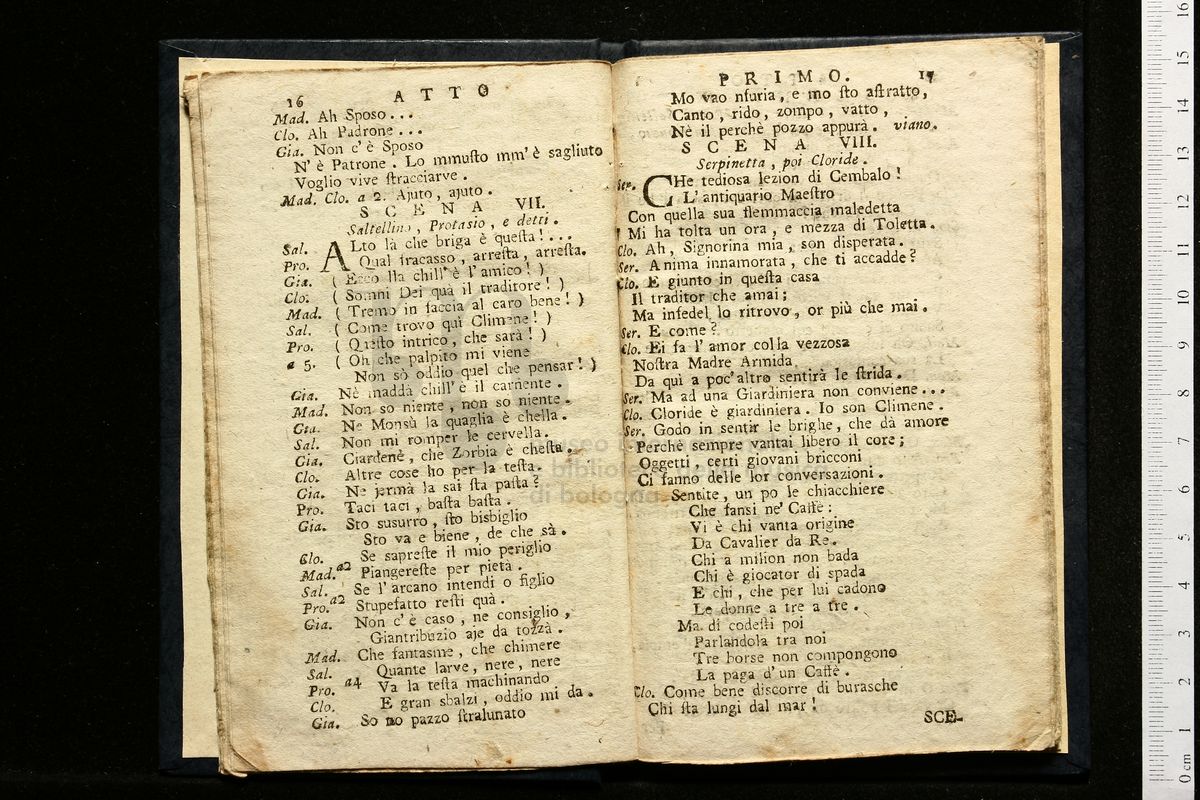 16 ATTO
Mad. Ah Sposo...
Clo. Ah Padrone...
Gia. Non c'è Sposo
N'è Patrone. Lo mmuſto mm'è sagliuto
Voglio vive ſtracciarve.
Mad. Clo. a 2. Ajuto, ajuto.
SCENA VII.
Saltellino, Protasio, e detti.
Sal. ALto là che briga è queſta!...
Pro. Qual fracasso, arreſta, arreſta.
Gia. (Ecco lla chill'è l'amico!)
Clo. (Somni Dei quà il traditore!)
Mad. (Tremo in faccia al caro bene!)
Sal. (Come trovo quì Climene!)
Pro. (Queſto intrico, che sarà!)
a 5. (Oh che palpito mi viene
Non sò oddio quel che pensar!)
Gia. Nè maddà chill'è il carnente.
Mad. Non so niente, non so niente.
Gia. Ne Monsù la quaglia è chella.
Sal. Non mi romper le cervella.
Gia. Ciardenè, che Zorbia è cheſta.
Clo. Altre cose ho per la teſta.
Gia. Ne jermà la sai ſta paſta?
Pro. Taci taci, baſta baſta.
Gia. Sto susurro, ſto bisbiglio
Sto va e biene, de che sà.
Clo. Se sapreſte il mio periglio
Mad. a2 Piangereſte per pietà.
Sal. Se l'arcano intendi o figlio
Pro. a2 Stupefatto reſti quà.
Gia. Non c'è caso, ne consiglio,
Giantribuzio aje da tozzà.
Mad. Che fantasme, che chimere
Sal. Quante larve, nere, nere
Pro. a4 Va la teſta machinando
Clo. E gran sbalzi, oddio mi da.
Gia. So no pazzo ſtralunato
PRIMO. 17
Mo vao nfuria, e mo ſto aſtratto,
Canto, rido, zompo, vatto,
Nè il perchè pozzo appurà. viano.
SCENA VIII.
Serpinetta, poi Cloride.
Ser. CHe tediosa lezion di Cembalo!
L'antiquario Maeſtro
Con quella sua flemmaccia maledetta
Mi ha tolta un ora, e mezza di Toletta.
Clo. Ah, Signorina mia, son disperata.
Ser. Anima innamorata, che ti accadde?
Clo. E giunto in queſta casa
Il traditor che amai;
Ma infedel lo ritrovo, or più che mai.
Ser. E come?
Clo. Ei fa l'amor colla vezzosa
Noſtra Madre Armida
Da quì a poc'altro sentirà le ſtrida.
Ser. Ma ad una Giardiniera non conviene...
Clo. Cloride è giardiniera. Io son Climene.
Ser. Godo in sentir le brighe, che dà amore
Perchè sempre vantai libero il core;
Oggetti, certi giovani bricconi
Ci fanno delle lor conversazioni.
Sentite, un po le chiacchiere
Che fansi ne' Caffè:
Vi è chi vanta origine
Da Cavalier da Re.
Chi a milion non bada
Chi è giocator di spada
E chi, che per lui cadono
Le donne a tre a tre.
Ma di codeſti poi
Parlandola tra noi
Tre borse non compongono
La paga d'un Caffè.
Clo. Come bene discorre di burasche
Chi ſta lungi dal mar!
SCE-